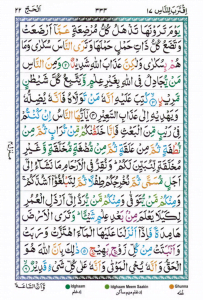 اِقْتَرَبَ لِلنَّاسِ ١٧
٣٣٣
اَلْحَجّ ٢٢
يَوْمَ تَرَوْنَهَا تَذْهَلُ كُلُّ مُرْضِعَةٍ عَمَّآ اَرْضَعَتْ
وَتَضَعُ كُلُّ ذَاتِ حَمْلٍ حَمْلَهَا وَتَرَى النَّاسَ سُكٰرٰى وَمَا
هُمْ بِسُكٰرٰى وَلٰكِنَّ عَذَابَ اللّٰهِ شَدِيْدٌ ۞ وَمِنَ النَّاسِ
مَنْ يُّجَادِلُ فِى اللّٰهِ بِغَيْرِ عِلْمٍ وَّيَتَّبِعُ كُلَّ شَيْطٰنٍ
مَّرِيْدٍ ۞ كُتِبَ عَلَيْهِ اَنَّهٗ مَنْ تَوَلَّاهُ فَاَنَّهٗ يُضِلُّهٗ
وَيَهْدِيْهِ اِلٰى عَذَابِ السَّعِيْرِ ۞ يٰٓاَيُّهَا النَّاسُ اِنْ كُنْتُمْ
فِىْ رَيْبٍ مِّنَ الْبَعْثِ فَاِنَّا خَلَقْنٰكُمْ مِّنْ تُرَابٍ ثُمَّ مِنْ
نُّطْفَةٍ ثُمَّ مِنْ عَلَقَةٍ ثُمَّ مِنْ مُّضْغَةٍ مُّخَلَّقَةٍ وَّغَيْرِ
مُخَلَّقَةٍ لِّنُبَيِّنَ لَكُمْ وَنُقِرُّ فِى الْاَرْحَامِ مَا نَشَآءُ اِلٰٓى
اَجَلٍ مُّسَمًّى ثُمَّ نُخْرِجُكُمْ طِفْلًا ثُمَّ لِتَبْلُغُوْٓا اَشُدَّكُمْ
وَمِنْكُمْ مَّنْ يُّتَوَفّٰى وَمِنْكُمْ مَّنْ يُّرَدُّ اِلٰٓى اَرْذَلِ الْعُمُرِ
لِكَيْلَا يَعْلَمَ مِنْۢ بَعْدِ عِلْمٍ شَيْــًٔا وَتَرَى الْاَرْضَ
هَامِدَةً فَاِذَآ اَنْزَلْنَا عَلَيْهَا الْمَآءَ اهْتَزَّتْ وَرَبَتْ
وَاَنْۢبَتَتْ مِنْ كُلِّ زَوْجٍۢ بَهِيْجٍ ۞ ذٰلِكَ بِاَنَّ اللّٰهَ هُوَ
الْحَقُّ وَاَنَّهٗ يُحْىِ الْمَوْتٰى وَاَنَّهٗ عَلٰى كُلِّ شَىْءٍ قَدِيْرٌ ۞
Idghaam
Idghaam Meem Saakin
Ghunna